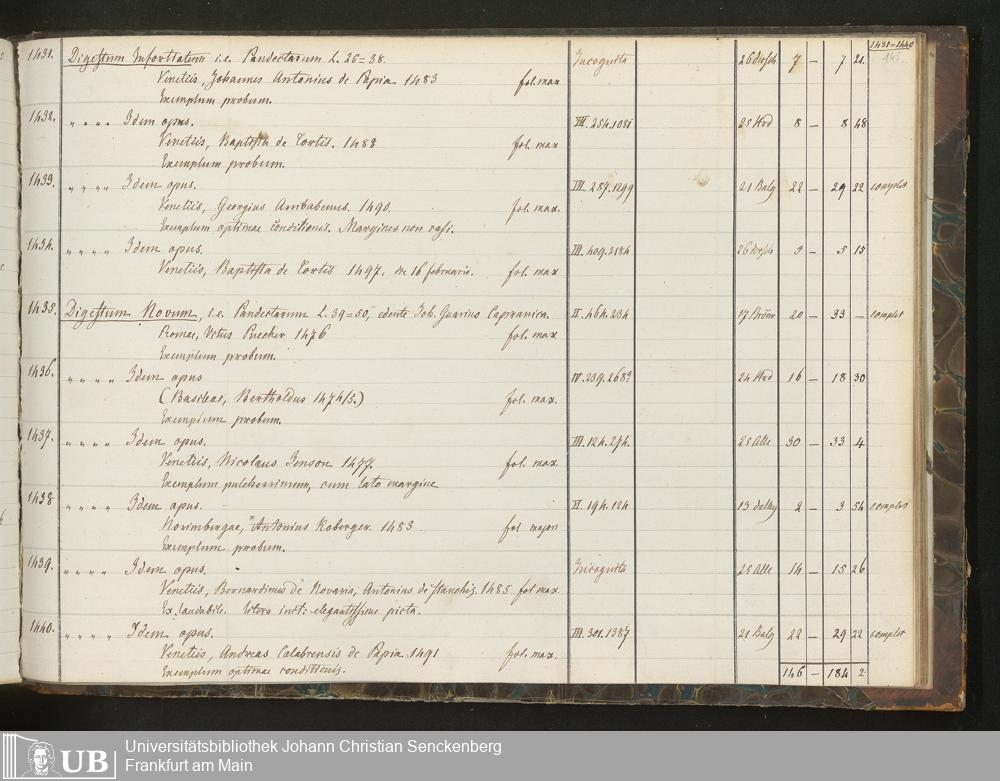 1431=1440
145.
1431. Digestum Infortiatum i.e. Pandectarum L. 25=38. Incognita 26 7 — 7 21
Venetiis, Johannes Antonius de Papia 1483 fol. max
Exemplum probum.
1432. " " " " Idem opus. III. 254. 1081 25 8 — 8 48
Venetiis, Baptista de Tortis. 1488 fol. max
Exemplum probum.
1433. " " " " Idem opus. III. 287. 1299 21 Balg 22 — 29 22 complet
Venetiis, Georgius Arribabenus. 1490. fol. max.
Exemplum optimae conditionis. Margines non rasi.
1434. " " " " Idem opus. III. 409. 2184 26 3 — 5 15
Venetiis, Baptista de Tortis 1497, die 16 februarii. fol. max
1435. Digestum Novum, i.e. Pandectarum L. 39=50, edente Joh. Guarino Capranica. II. 464. 234 17 20 — 33 — complet
Romae, Vitus Puecher 1476 fol. max
Exemplum probum.
1436. " " " " Idem opus IV. 239. 2683 24 16 — 18 30
(Basileae, Bertholdus 1474/5.) fol. max.
Exemplum probum.
1437. " " " " Idem opus. III. 124. 274. 25 Alle 30 — 33 4
Venetiis, Nicolaus Jenson 1477. fol. max.
Exemplum pulcherrimum, cum lato margine
1438 " " " " Idem opus. II. 194. 124 13 2 — 3 54 complet
Norimbergae, Antonius Koberger. 1483 fol major
Exemplum probum.
1439. " " " " Idem opus. Incognita 25 Alle 14 — 15 26
Venetiis, Bernardinus de Novaria, Antonius de stanchis. 1485 fol max.
Ex. laudabile. litera init: elegantissime picta.
1440. " " " " Idem opus. III. 301. 1387 21 Balg 22 — 29 22 complet
Venetiis, Andreas Calabrensis de Papia 1491 fol. max.
Exemplum optimae conditionis.
146 — 184 2
UB
Universitätsbibliothek Johann Christian Senckenberg
Frankfurt am Main